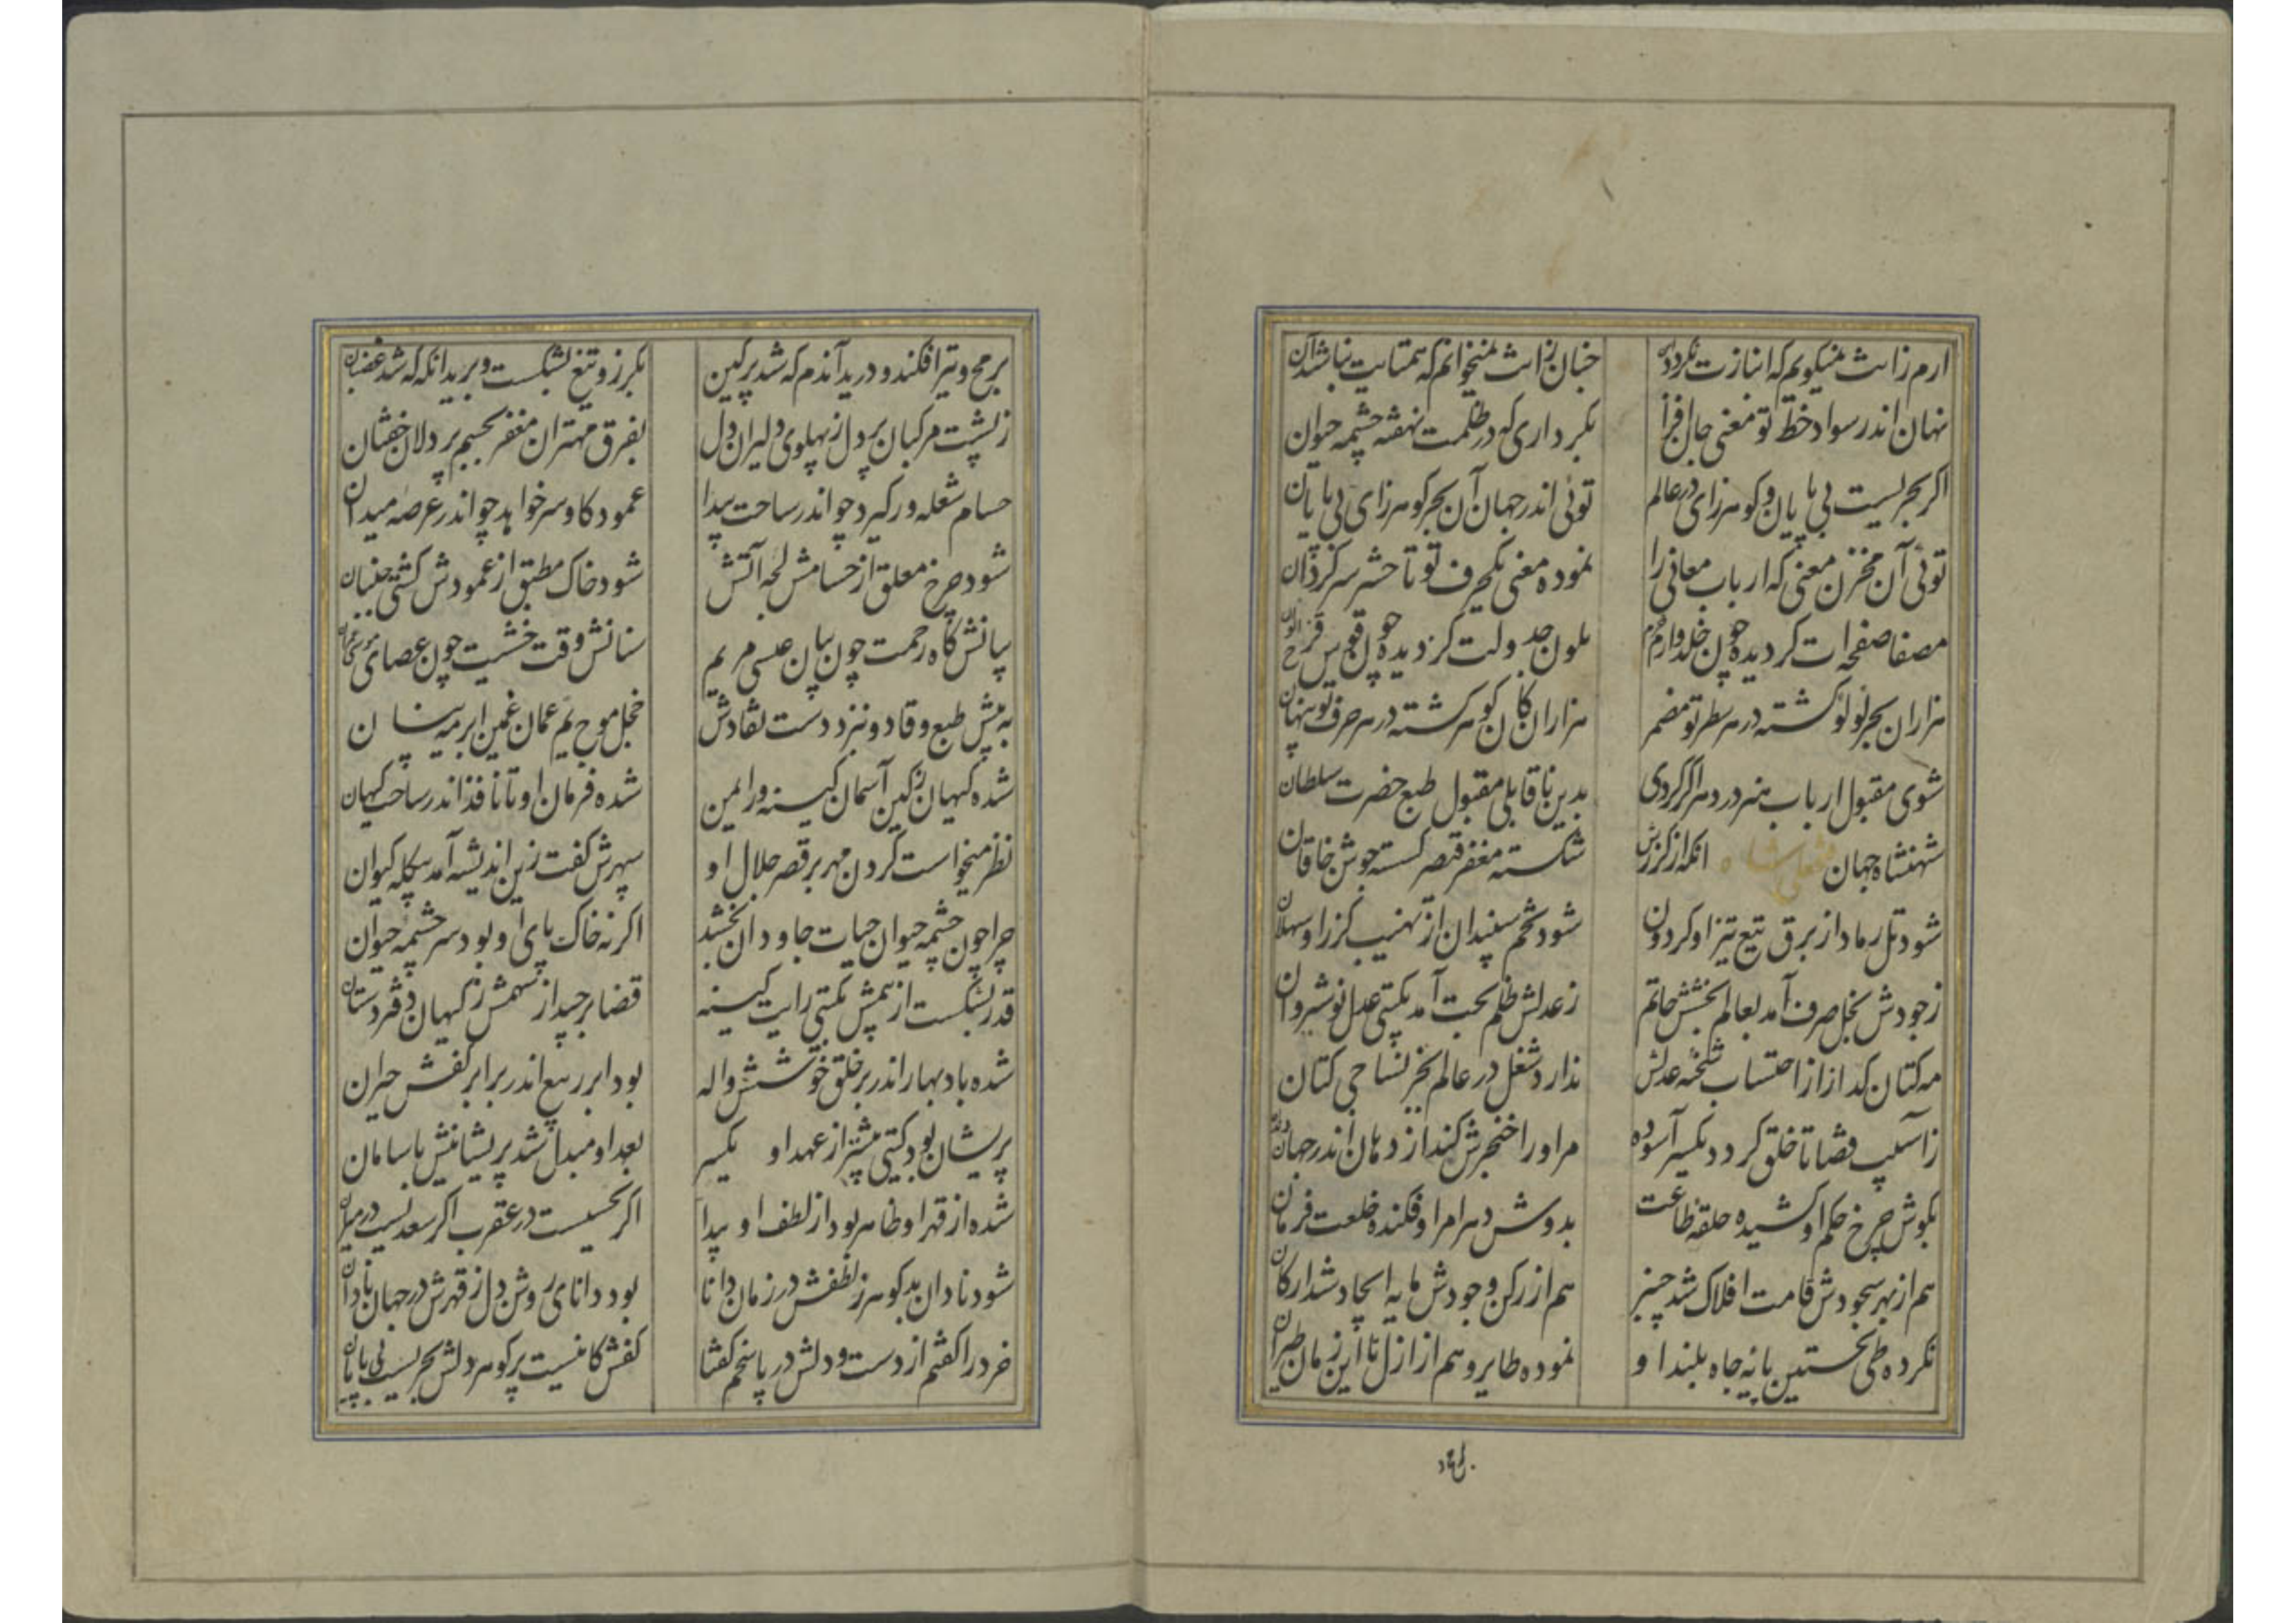 ارم زانت نمیکویم که انبازت نکردد این جنان زانت نمیخوانم که همتایت نباشد آن
نهان اندر سواد خط تو معنی جان افزا بکرداری که در ظلمت نهفته چشمه حیوان
اکر بحریست بی پایان و کوهرزای در عالم توئی اندر جهان آن بحر کوهرزای بی پایان
توئی آن مخزن معنی که ارباب معانی را نموده معنی یکحرف تو تا حشر سرکردان
مصفا صفحه ات کردیده چون خلد و ارم خرم ملون جدولت کردیده چون قوس قزح الوان
هزاران بحر لولو کشته در هر سطر تو مضمر هزاران کان کوهر کشته در هر حرف تو پنهان
شوی مقبول ارباب هنر در دهر اکر کردی بدین ناقابلی مقبول طبع حضرت سلطان
شهنشاه جهان فتحعلی شاه انکه از کرزش شکسته مغفر قیصر کسسته جوشن خاقان
شود تل رماد از برق تیغ تیز او کردون شود تخم سپندان از نهیب کرز او سهلان
زجودش بخل صرف آمد بعالم بخشش حاتم زعدلش ظلم بحت آمد بکیتی عدل نوشیروان
مه کتان کداز از احتساب شحنه عدلش ندارد شغل در عالم بخز نساجی کتان
زآسیب قضا تا خلق کردد یکسر آسوده مر او را خنجرش کند از دهان اندر جهان دندان
بکوش چرخ حکم او کشیده حلقه طاعت بدوش دهر امر او فکنده خلعت فرمان
هم از بهر سجودش قامت افلاک شد چنبر هم از رکن وجودش مایه ایجاد شد ارکان
نکرده طی نخستین پایه جاه بلند او نموده طایر وهم از ازل تا این زمان طیران
برمح
برمح و تیر افکند و درید آندم که شد پر کین بکرز و تیغ بشکست و برید انکه که شد غضبان
زپشت مرکبان پردل زپهلوی دلیران دل بفرق مهتران مغفر بجسم پردلان خفتان
حسام شعله ور کیرد چو اندر ساحت بیدا عمود کاوسر خواهد چو اندر عرصه میدان
شود چرخ معلق از حسامش لجه آتش شود خاک مطبق از عمودش کشتی جنبان
بیانش کاه رحمت چون بیان عیسی مریم سنانش وقت خشیت چون عصای موسی عمران
به پیش طبع وقاد و نزد دست نقادش خجل موج یم عمان غمین ابر مه نیسان
شده کیهان زکین آسمان کینه ور ایمن شده فرمان او تا نافذ اندر ساحت کیهان
نظر میخواست کردن مهر بر قصر جلال او سپهرش کفت زین اندیشه آمد بیکله کیوان
چرا چون چشمه حیوان حیات جاودان بخشد اکر نه خاک پای او بود سر چشمه حیوان
قدر بشکست از بیمش بکیتی رایت کینه قضا برچید از سهمش زکیهان دفتر دستان
شده باد بهار اندر بر خلق خوشش واله بود ابر ربیع اندر برابر کفش حیران
پریشان بود کیتی پیشتر از عهد او یکسر بعهد او مبدل شد پریشانیش با سامان
شده از قهر او ظاهر بود از لطف او پیدا اکر نحسیست در عقرب اکر سعدیست در میزان
شود نادان بدکوهر زلطفش در زمان دانا بود دانای روشن دل زقهرش در جهان نادان
خرد را کفتم از دست و دلش در پاسخم کفتا کفش کانیست پر کوهر دلش بحریست بی پایان